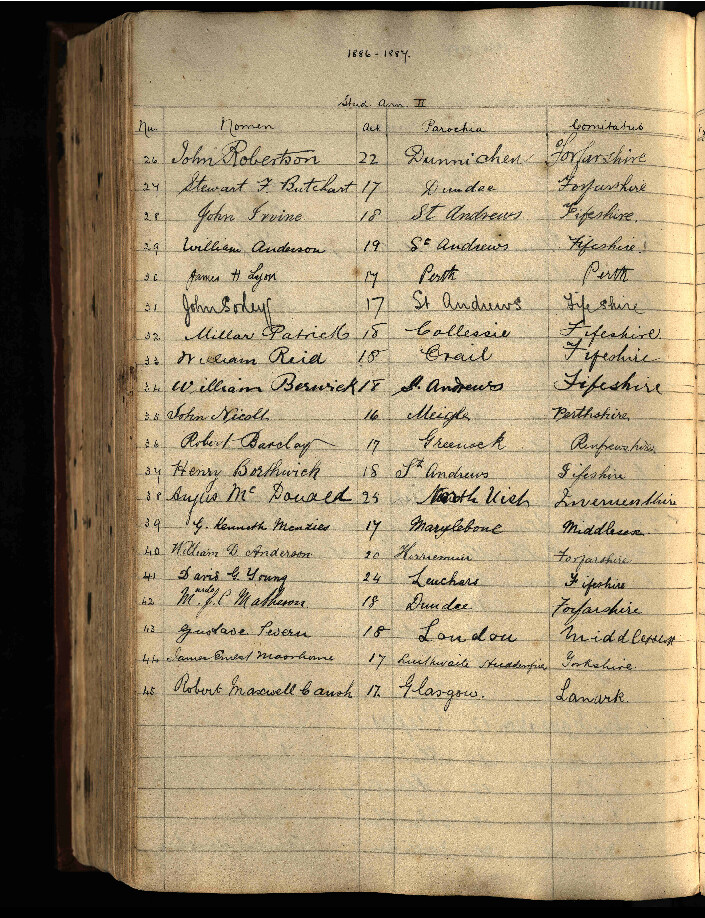 1886-1887.
Stud. Ann. II
No. Nomen Aet Parochia Comitatus
26 John Robertson 22 Dunnichen Forfarshire
27 Stewart F. Butchart 17 Dundee Forfarshire
28 John Irvine 18 St Andrews Fifeshire.
29 William Anderson 19 St Andrews Fifeshire.
30 James H Lyon 17 Perth Perth
31 John 17 St Andrews Fifeshire
32 Millar Patrick 18 Collessie Fifeshire.
33 William Reid 18 Crail Fifeshire
34 William Berwick 18 St. Andrews Fifeshire
35 John Nicoll 16 Meigle Perthshire
36 Robert Barclay 17 Greenock Renfrewshire
37 Henry Borthwick 18 St Andrews Fifeshire
38 Angus Mc Donald 25 North Uist Invernesshire
39 G. Kenneth Menzies 17 Marylebone Middlesex.
40 William D. Anderson 20 Kirriemuir Forfarshire
41 David G. Young 24 Leuchars Fifeshire
42 J. C. Matheson. 18 Dundee Forfarshire
43 Gustave 18 London Middlesex
44 James Ernest Moorhouse 17 Yorkshire.
45 Robert Maxwell 17 Glasgow. Lanark.